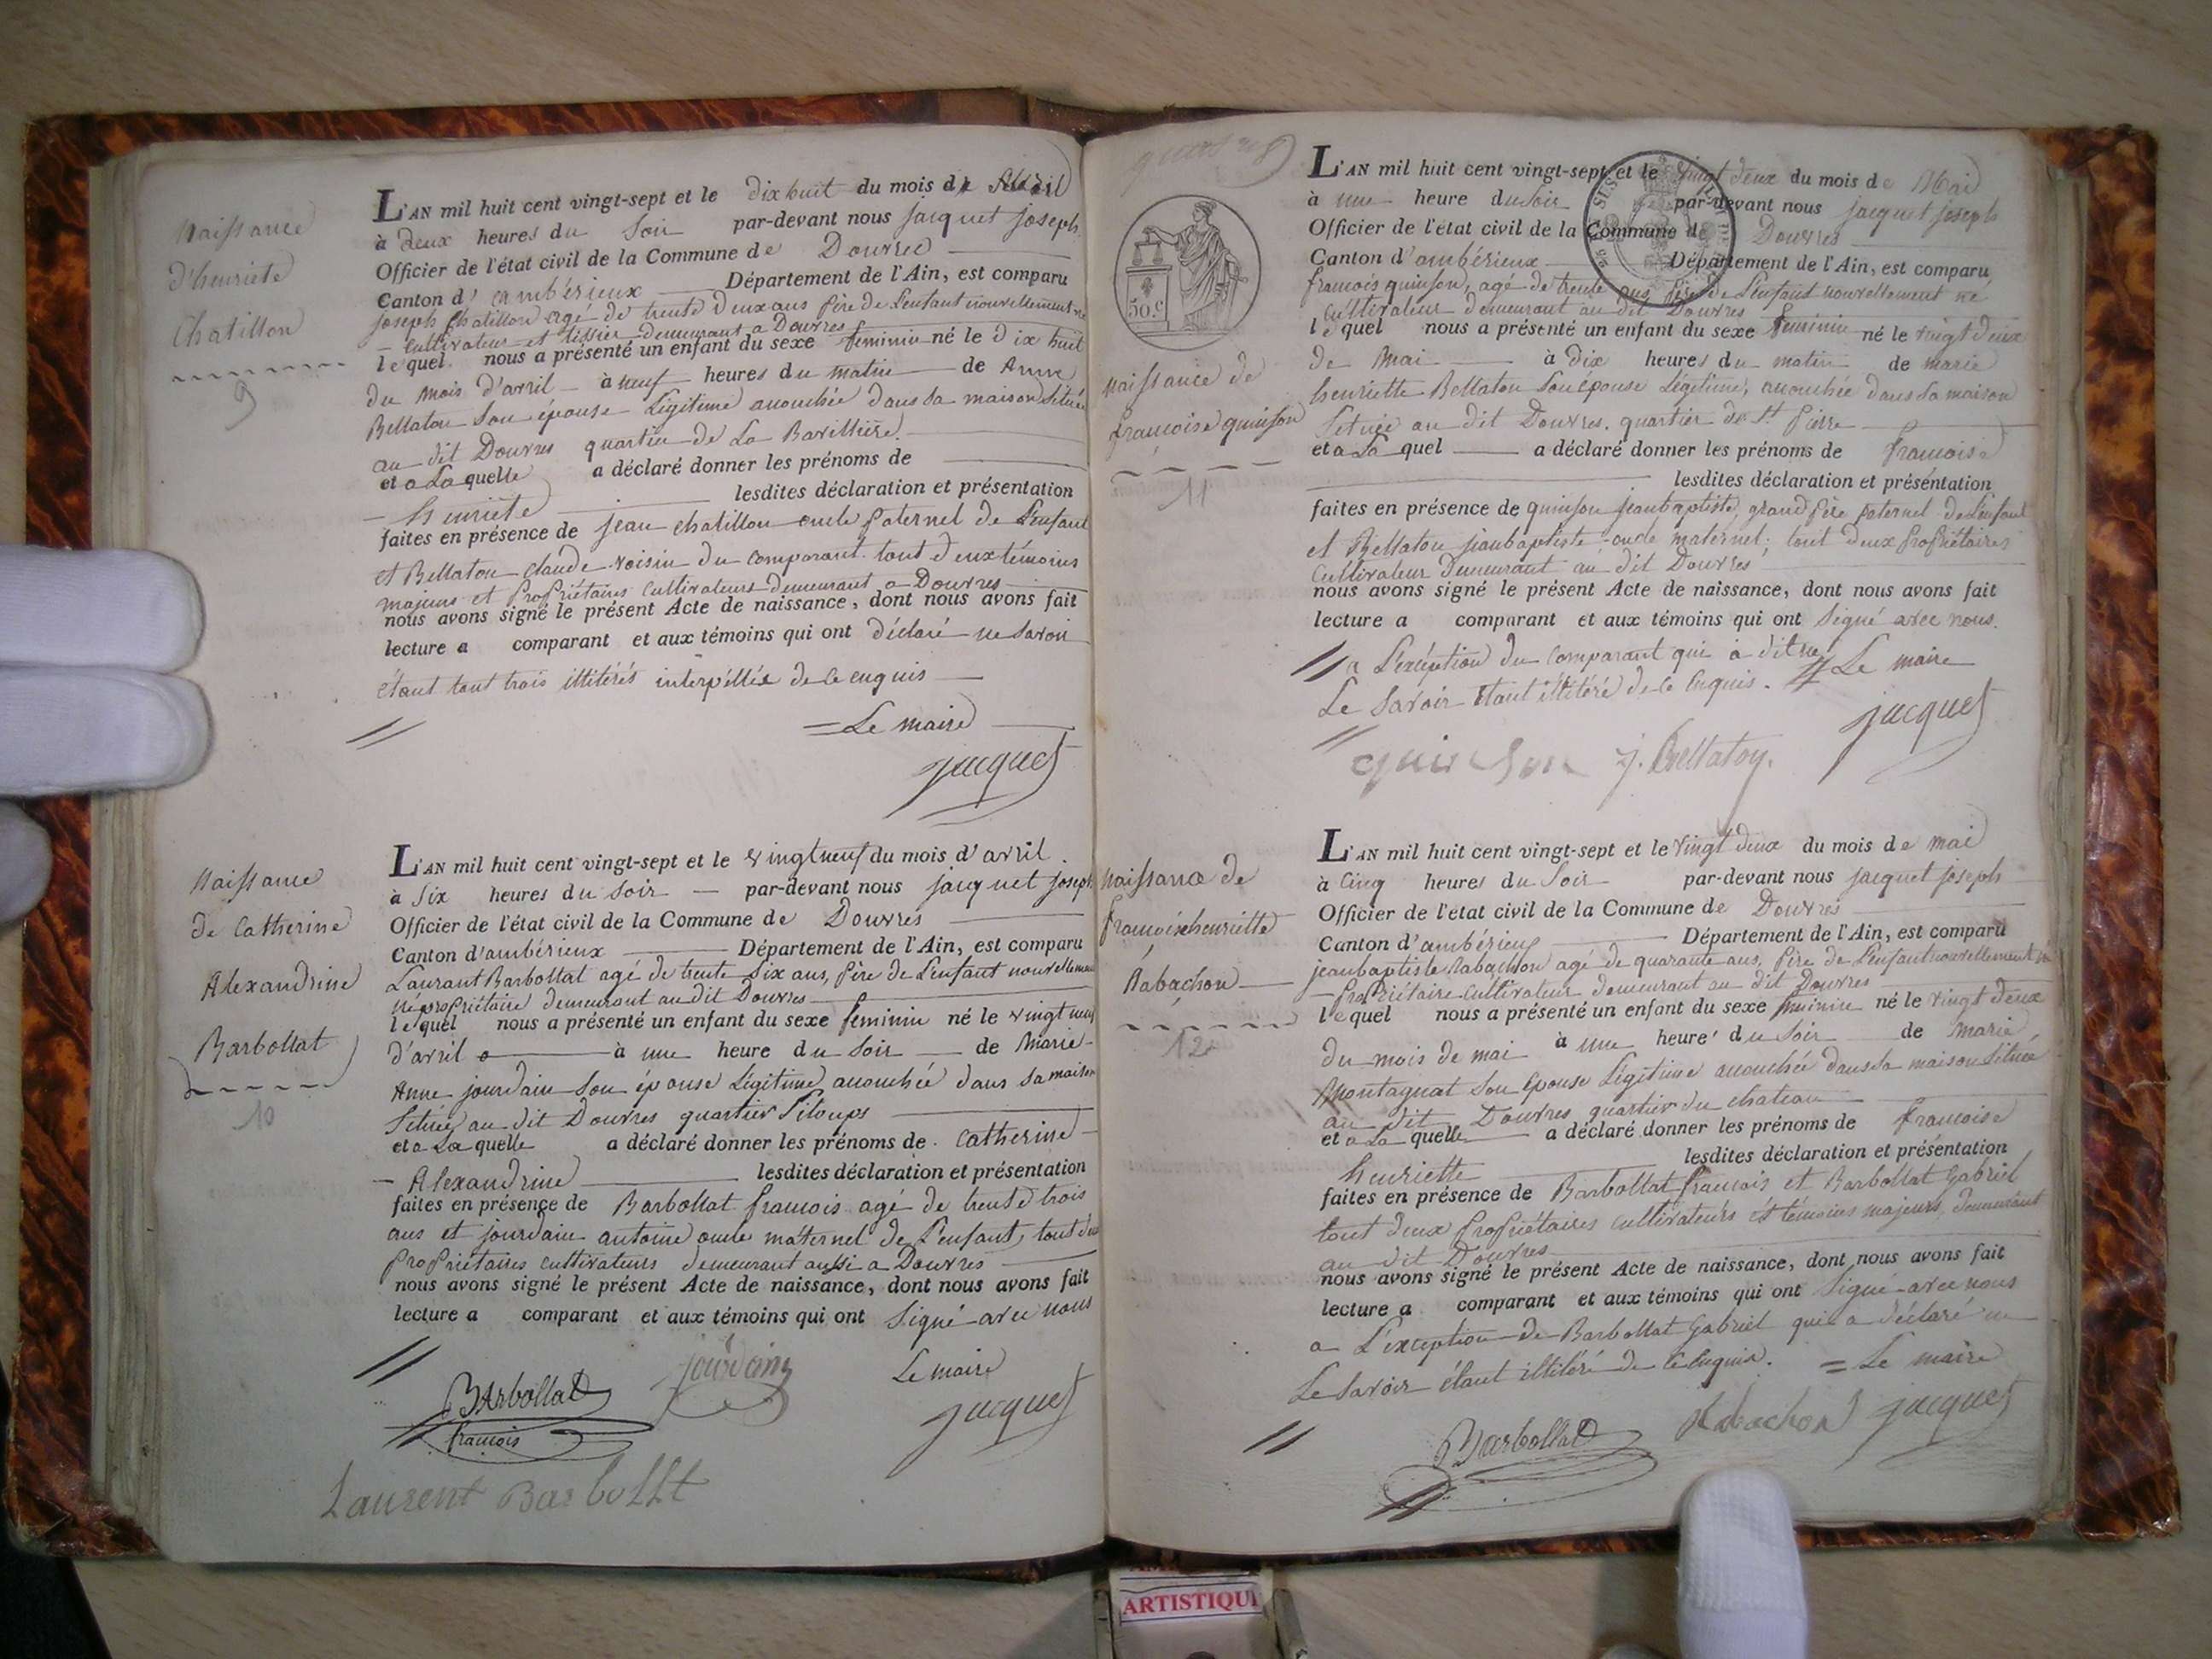 Naissance
d'henriete
Chatillon
9
L'AN mil huit cent vingt-sept et le dix huit du mois de Avril
à deux heures du Soir par-devant nous jacquet joseph
Officier de l'état civil de la Commune de Douvres
Canton d' ambérieux Département de l'Ain, est comparu
joseph Chatillon agé de trente deux ans père de l'enfant nouvellement né
cultivateur et tissier demeurant a Douvres
lequel nous a présenté un enfant du sexe feminin né le dix huit
du mois d'avril à neuf heures du matin de Anne
Bellaton son épouse Légitime accouchée dans sa maison située
au dit Douvres quartier de La
et a La quelle a déclaré donner les prénoms de
henriete lesdites déclaration et présentation
faites en présence de jean chatillon oncle paternel de L'enfant
et Bellaton claude voisin du comparant tout deux témoins
majeurs et propriétaires cultivateurs demeurant a Douvres
nous avons signé le présent Acte de naissance, dont nous avons fait
lecture a comparant et aux témoins qui ont déclaré ne savoir
étant tout trois illitérés interpéllés de ce enquis
Le maire
jacquet
Naissance
de Catherine
Alexandrine
Barbollat
10
L'AN mil huit cent vingt-sept et le vingt neuf du mois d'avril
à Six heures du Soir par-devant nous jacquet joseph
Officier de l'état civil de la Commune de Douvres
Canton d'ambérieux Département de l'Ain, est comparu
Laurant Barbollat agé de trente Six ans, père de L'enfant nouvellement
né propriétaire demeurant au dit Douvres
lequel nous a présenté un enfant du sexe feminin né le vingt neuf
d'avril à une heure du Soir de Marie
Anne jourdain Son épouse Légitime accouchée dans sa maison
Située au dit Douvres quartier
et a La quelle a déclaré donner les prénoms de Catherine
Alexandrine lesdites déclaration et présentation
faites en présence de Barbollat francois agé de trente trois
ans et jourdain antoine oncle máternel de L'enfant, tout deux
propriétaires cultivateurs demeurant aussi a Douvres
nous avons signé le présent Acte de naissance, dont nous avons fait
lecture a comparant et aux témoins qui ont Signé avec nous
Le maire
Barbollat jourdain jacquet
francois
Laurent Barbollt
50.c
Naissance de
francoise quinson
11
L'AN mil huit cent vingt-sept et le vingt deux du mois de Mai
à une heure du Soir par-devant nous jacquet joseph
Officier de l'état civil de la Commune de Douvres
Canton d'ambérieux Département de l'Ain, est comparu
francois quinson, agé de trente ans père de L'enfant nouvellement né
Cultivateur demeurant au dit Douvres
lequel nous a présenté un enfant du sexe feminin né le vingt deux
de Mai à dix heures du matin de marie
henriette Bellaton son épouse Légitime, accouchée dans sa maison
Située au dit Douvres. quartier de St. Pierre
et a La quel a déclaré donner les prénoms de francoise
lesdites déclaration et présentation
faites en présence de quinson jeanbaptiste, grand père paternel de L'enfant
et Bellaton jeanbaptiste oncle maternel; tout deux propriétaires
Cultivateur demeurant au dit Douvres
nous avons signé le présent Acte de naissance, dont nous avons fait
lecture a comparant et aux témoins qui ont Signé avec nous.
a L'exception du Comparant qui à dit ne Le maire
Le Savoir Etant illitéré de ce Enquis.
jacquet
quinson j. Bellaton.
Naissance de
francoise henriette
Rabachon
12
L'AN mil huit cent vingt-sept et le vingt deux du mois de mai
à Cinq heures du Soir par-devant nous jacquet joseph
Officier de l'état civil de la Commune de Douvres
Canton d'ambérieux Département de l'Ain, est comparu
jeanbaptiste Rabachon agé de quarante ans, père de L'enfant nouvellement né
propriétaire Cultivateur demeurant au dit Douvres
lequel nous a présenté un enfant du sexe feminin né le vingt deux
du mois de mai à une heure du Soir de marie
Montagnat Son épouse Légitime accouchée dans sa maison Située
au dit Douvres quartier du chateau
et a La quelle a déclaré donner les prénoms de francoise
henriette lesdites déclaration et présentation
faites en présence de Barbollat francois et Barbollat Gabriel
tout deux propriétaires cultivateurs et témoins majeurs, demeurant
au dit Douvres
nous avons signé le présent Acte de naissance, dont nous avons fait
lecture a comparant et aux témoins qui ont Signé avec nous
a L'exception de Barbollat Gabriel qui a déclaré ne
Le Savoir étant illitéré de ce Enquis. Le maire
Barbollat Rabachon jacquet
ARTISTIQU